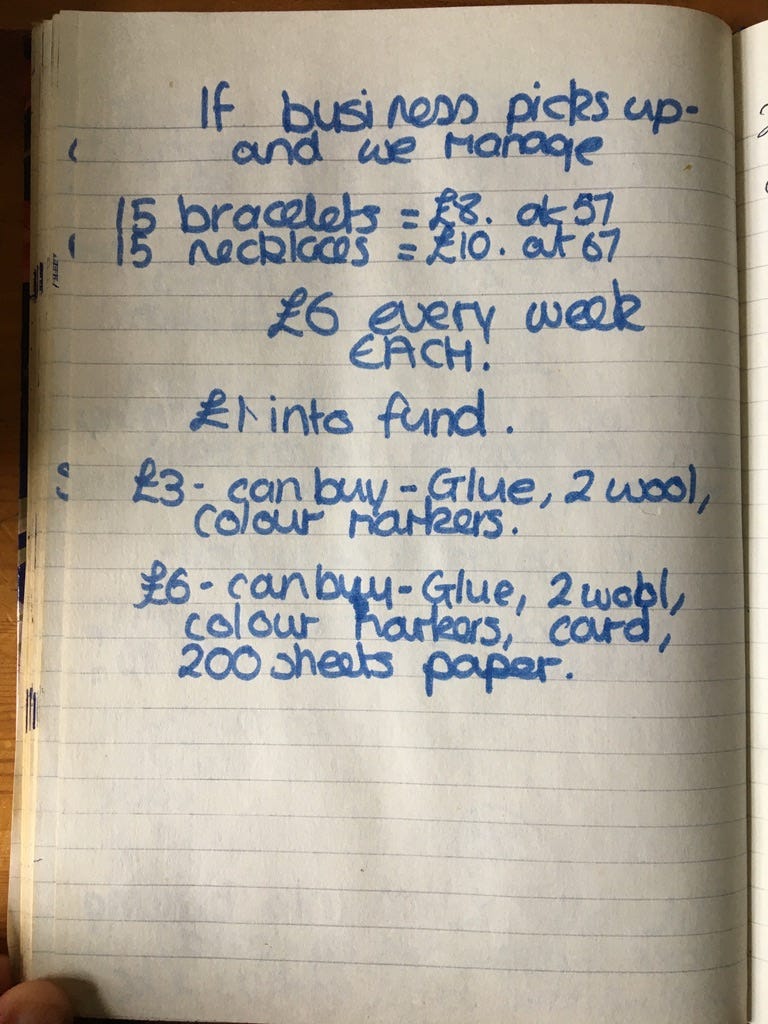 If business picks up-
and we manage
15 bracelets = £8. at 57
15 necklaces = £10. at 67
£6 every week
EACH.
£1 into fund.
£3 - can buy - Glue, 2 wool,
colour markers.
£6 - can buy - Glue, 2 wool,
colour markers, card,
200 sheets paper.